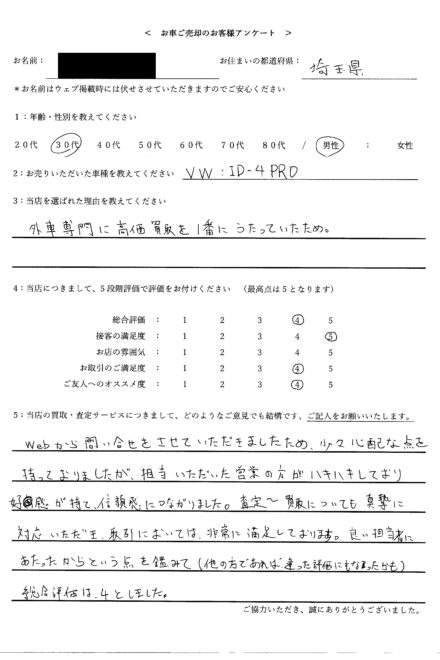 ＜ お車ご売却のお客様アンケート ＞
お名前： お住まいの都道府県： 埼玉県
＊お名前はウェブ掲載時には伏せさせていただきますのでご安心ください
1：年齢・性別を教えてください
20代 30代 40代 50代 60代 70代 80代 / 男性 ： 女性
2：お売りいただいた車種を教えてください VW：ID-4 PRO
3：当店を選ばれた理由を教えてください
外車専門に高価買取を1番にうたっていたため。
4：当店につきまして、5段階評価で評価をお付けください （最高点は5となります）
総合評価 ： 1 2 3 4 5
接客の満足度 ： 1 2 3 4 5
お店の雰囲気 ： 1 2 3 4 5
お取引のご満足度 ： 1 2 3 4 5
ご友人へのオススメ度 ： 1 2 3 4 5
5：当店の買取・査定サービスにつきまして、どのようなご意見でも結構です、ご記入をお願いいたします。
Webから問い合せをさせていただきましたため、少々心配な点を
持っておりましたが、担当いただいた営業の方がハキハキしており
好感が持て、信頼感につながりました。査定〜買取についても真摯に
対応いただき、取引においては、非常に満足しております。良い担当者に
あたったからという点を鑑みて（他の方であれば、違った評価にもなったかも）
総合評価は、4としました。
ご協力いただき、誠にありがとうございました。